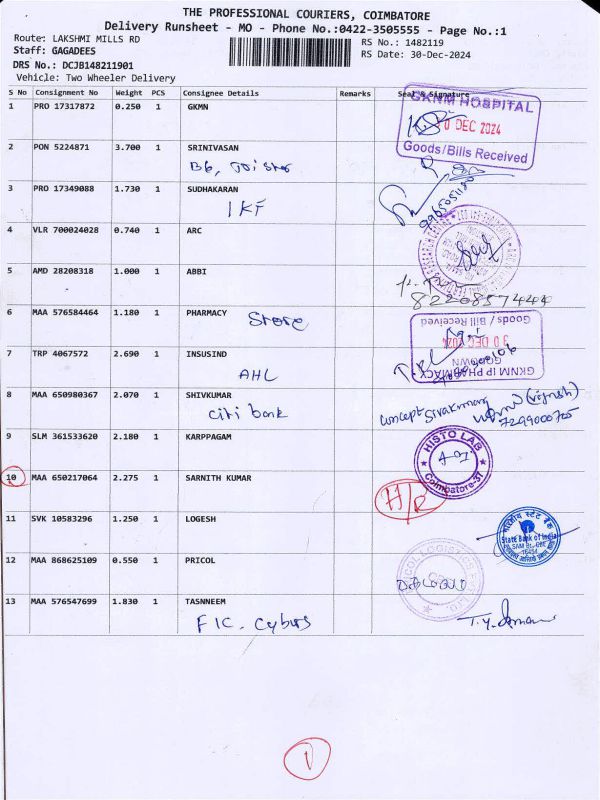 THE PROFESSIONAL COURIERS, COIMBATORE
Delivery Runsheet - MO - Phone No.:0422-3505555 - Page No.:1
Route: LAKSHMI MILLS RD
Staff: GAGADEES
RS No.: 1482119
RS Date: 30-Dec-2024
DRS No.: DCJB148211901
Vehicle: Two Wheeler Delivery
S No Consignment No Weight PCS Consignee Details Remarks Seal & Signature
1 PRO 17317872 0.250 1 GKMN
GKNM HOSPITAL
0 DEC 2024
Goods/Bills Received
2 PON 5224871 3.700 1 SRINIVASAN
3 PRO 17349088 1.730 1 SUDHAKARAN
IKF
4 VLR 700024028 0.740 1 ARC
5 AMD 28208318 1.000 1 ABBI
8220857444
6 MAA 576584464 1.180 1 PHARMACY
Store
Goods / Bill Received
30 DEC 2024
GODOWN
GKNM IP PHARMACY
7 TRP 4067572 2.690 1 INSUSIND
AHL
8 MAA 650980367 2.070 1 SHIVKUMAR
Citi bank
concept
7299000725
9 SLM 361533620 2.180 1 KARPPAGAM
HISTO LAB
Coimbatore-37
10 MAA 650217064 2.275 1 SARNITH KUMAR
H/R
11 SVK 10583296 1.250 1 LOGESH
भारतीय स्टेट बैंक
State Bank of India
12 MAA 868625109 0.550 1 PRICOL
13 MAA 576547699 1.830 1 TASNNEEM
FIC. Cybers
1